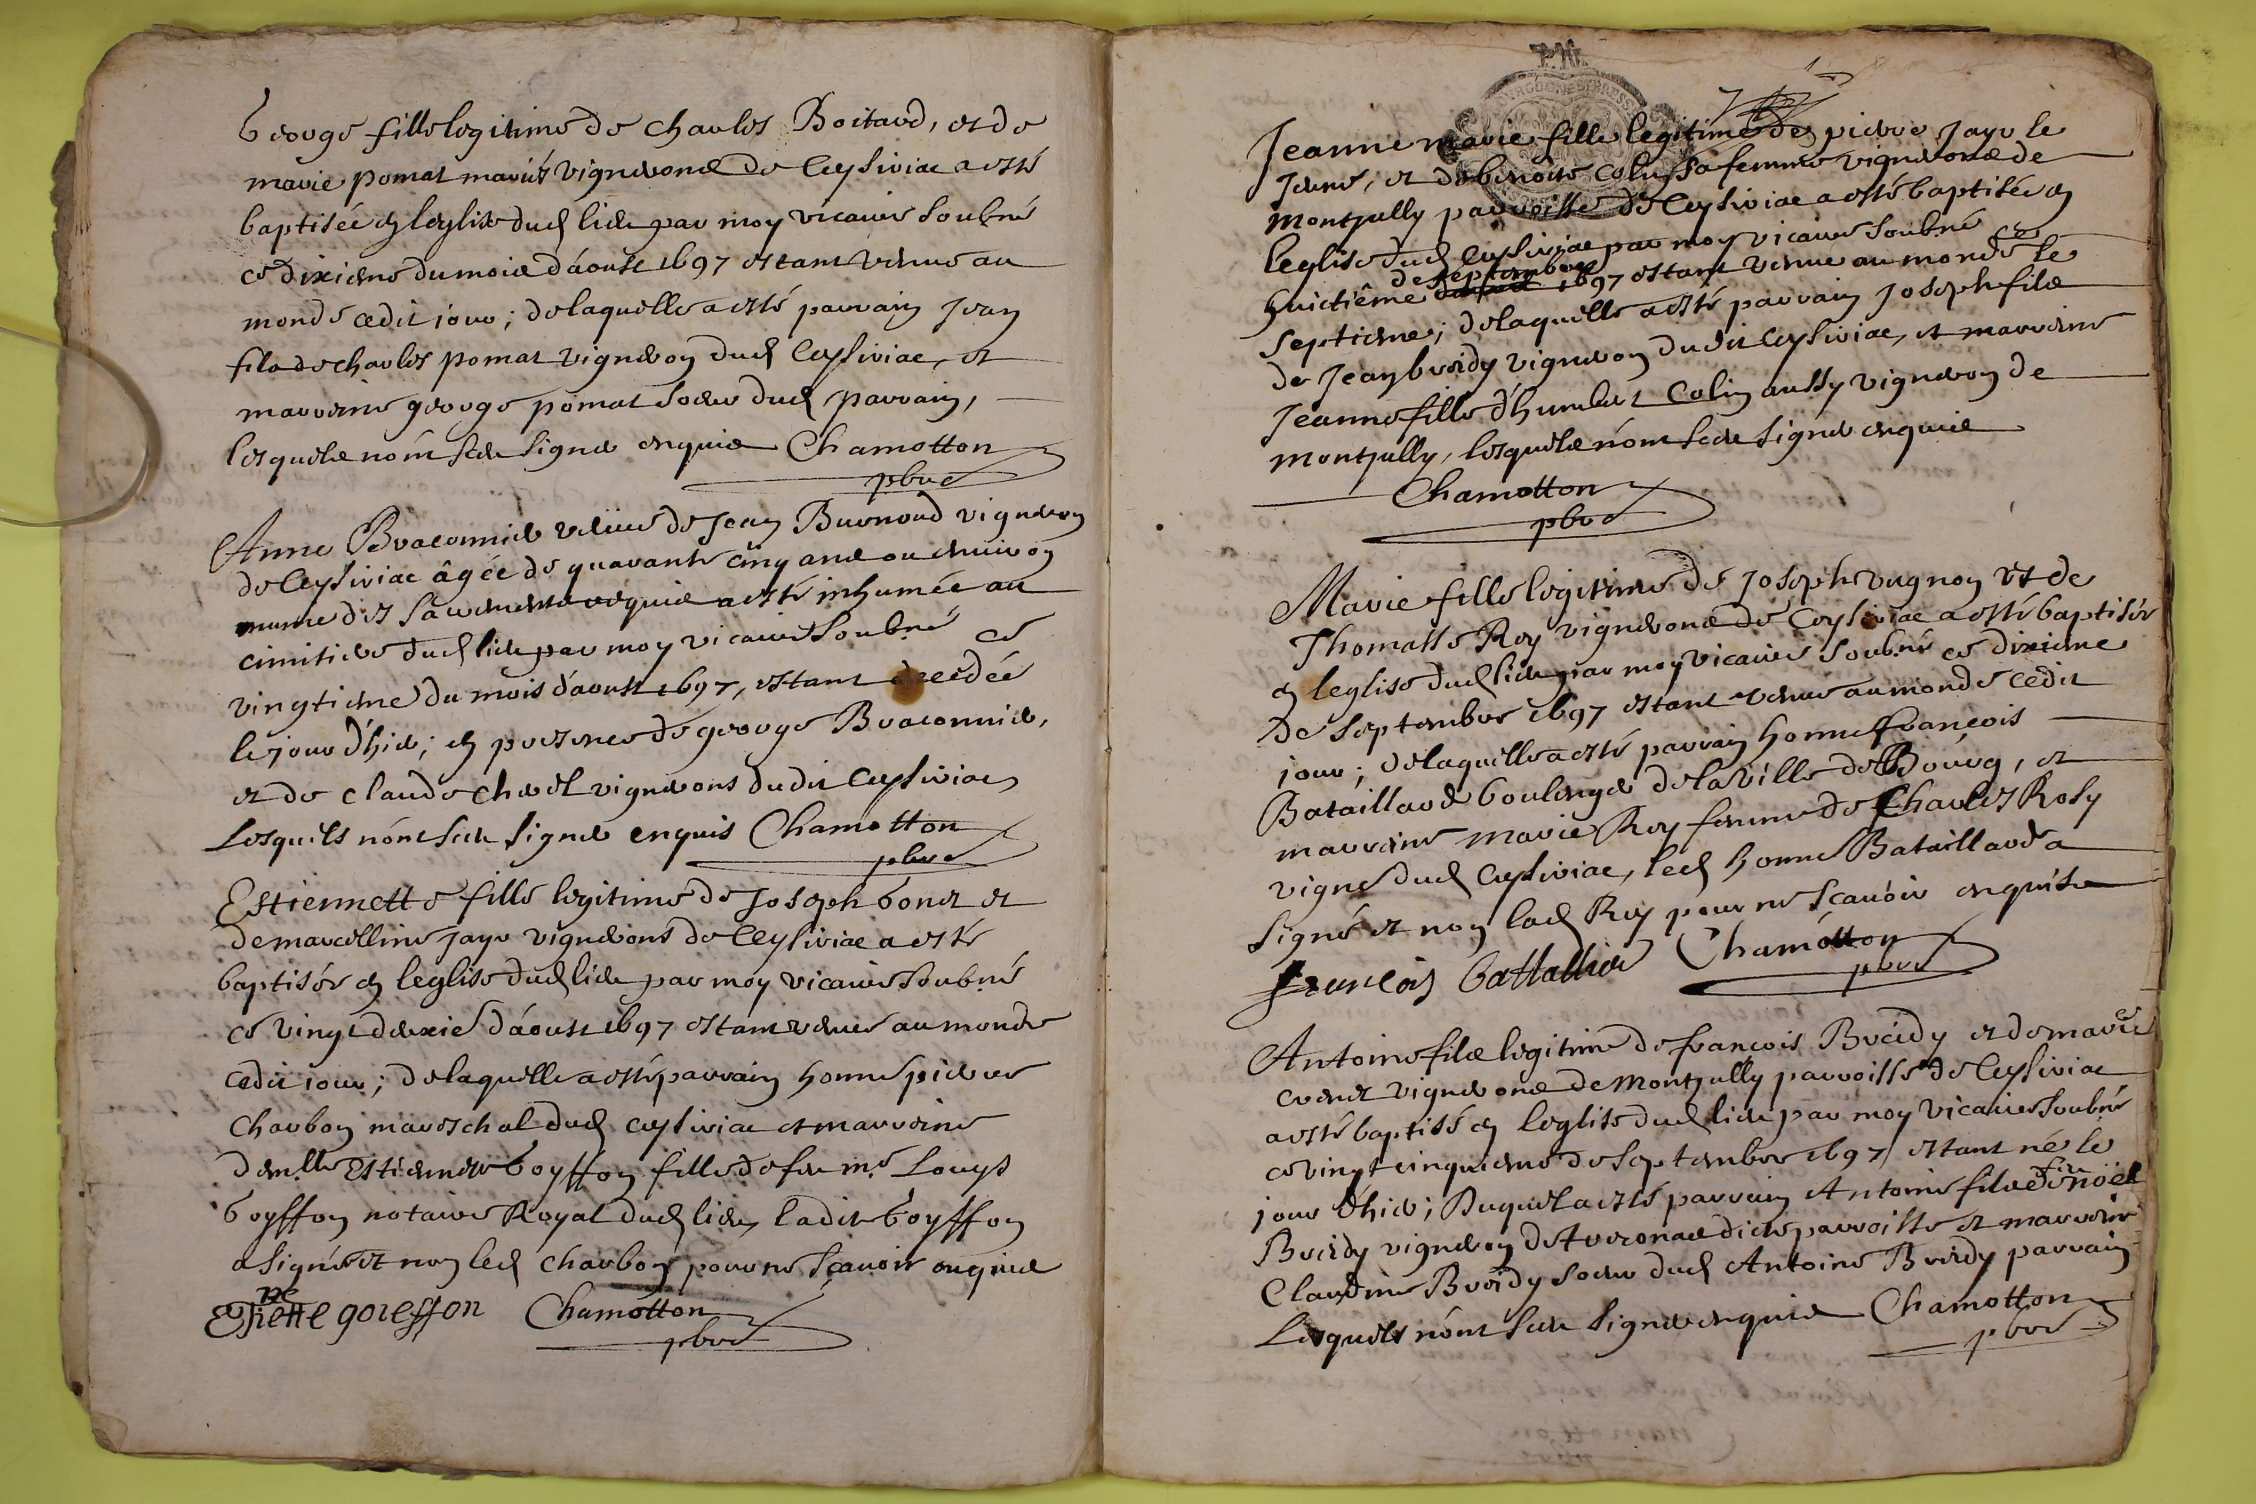 George fille legitime de Charles Boitard, et de
marie pomat mariés vignerons de Ceyseriac a esté
baptisée en leglise dud lieu par moy vicaire soubné
ce dixieme du mois d'aoust 1697 estant venue au
monde cedit jour; de laquelle a esté parrain Jean
fils de charles pomat vigneron dud Ceyseriac, et
marreine george pomat soeur dud parrain,
lesquels n'ont sceu signer enquis Chamotton
pbre
Anne Braconnier veüve de Jean Burnoud vigneron
de Ceyseriac âgée de quarante cinq ans ou environ
munie des sacrements requis a esté inhumée au
cimitiere dud lieu par moy vicaire soubné ce
vingtieme du mois d'aoust 1697, estant decedée
le jour d'hier; en presence de george Braconnier,
et de claude chevet vignerons dudit Ceyseriac
Lesquels n'ont sceu signer enquis Chamotton
pbre
Estiennette fille legitime de Joseph bonet et
de marcelline jayr vignerons de Ceyseriac a esté
baptisée en leglise dud lieu par moy vicaire soubné
ce vingt deuxie d'aoust 1697 estant venue au monde
cedit jour; de laquelle a esté parrain honne pierre
charbon mareschal dud ceyseriac et marreine
demlle Estiennette goyffon fille de feu me Louys
goyffon notaire Royal dud lieu, ladite goyffon
a signée et non led charbon pour ne sçavoir enquis
Etiennette goieffon Chamotton
pbre
Jeanne marie fille legitime de pierre Jayr le
jeune, et de benoite Colin sa femme vignerons de
montjully parroisse de Ceyseriac a esté baptisée en
leglise dud Ceyseriac par moy vicaire soubné ce
de septembre
huictiême 1697 estant venue au monde le
septieme; de laquelle a esté parrain Joseph fils
de Jean breidy vigneron dudit Ceyseriac, et marreine
Jeanne fille d'humbert Colin aussy vigneron de
montjully, lesquels n'ont sceu signer enquis
Chamotton
pbre
Marie fille legitime de Joseph vugnon et de
Thomasse Rey vignerons de Ceyseriac a esté baptisée
en leglise dud lieu par moy vicaire soubné ce dixieme
de septembre 1697 estant venue au monde cedit
jour; de laquelle a esté parrain honne françois
Bataillard boulenger de la ville de Bourg, et
marreine marie Rey femme de Charles Rosy
vigner dud Ceyseriac, led honne Bataillard a
signé et non lad Rey pour ne sçavoir enquise
françois battallier Chamotton
pbre
Antoine fils legitime de françois Breidy et de marie
evenet vignerons de Montjully parroisse de Ceyseriac
a esté baptisé en leglise dud lieu par moy vicaire soubné
ce vingt cinquieme de septembre 1697 estant né le
jour d'hier; Duquel a esté parrain Antoine fils de feu noël
Breidy vigneron de dicte parroisse et marreine
Claudine Breidy soeur dud Antoine Breidy parrain
Lesquels n'ont sceu signer enquis Chamotton
pbre